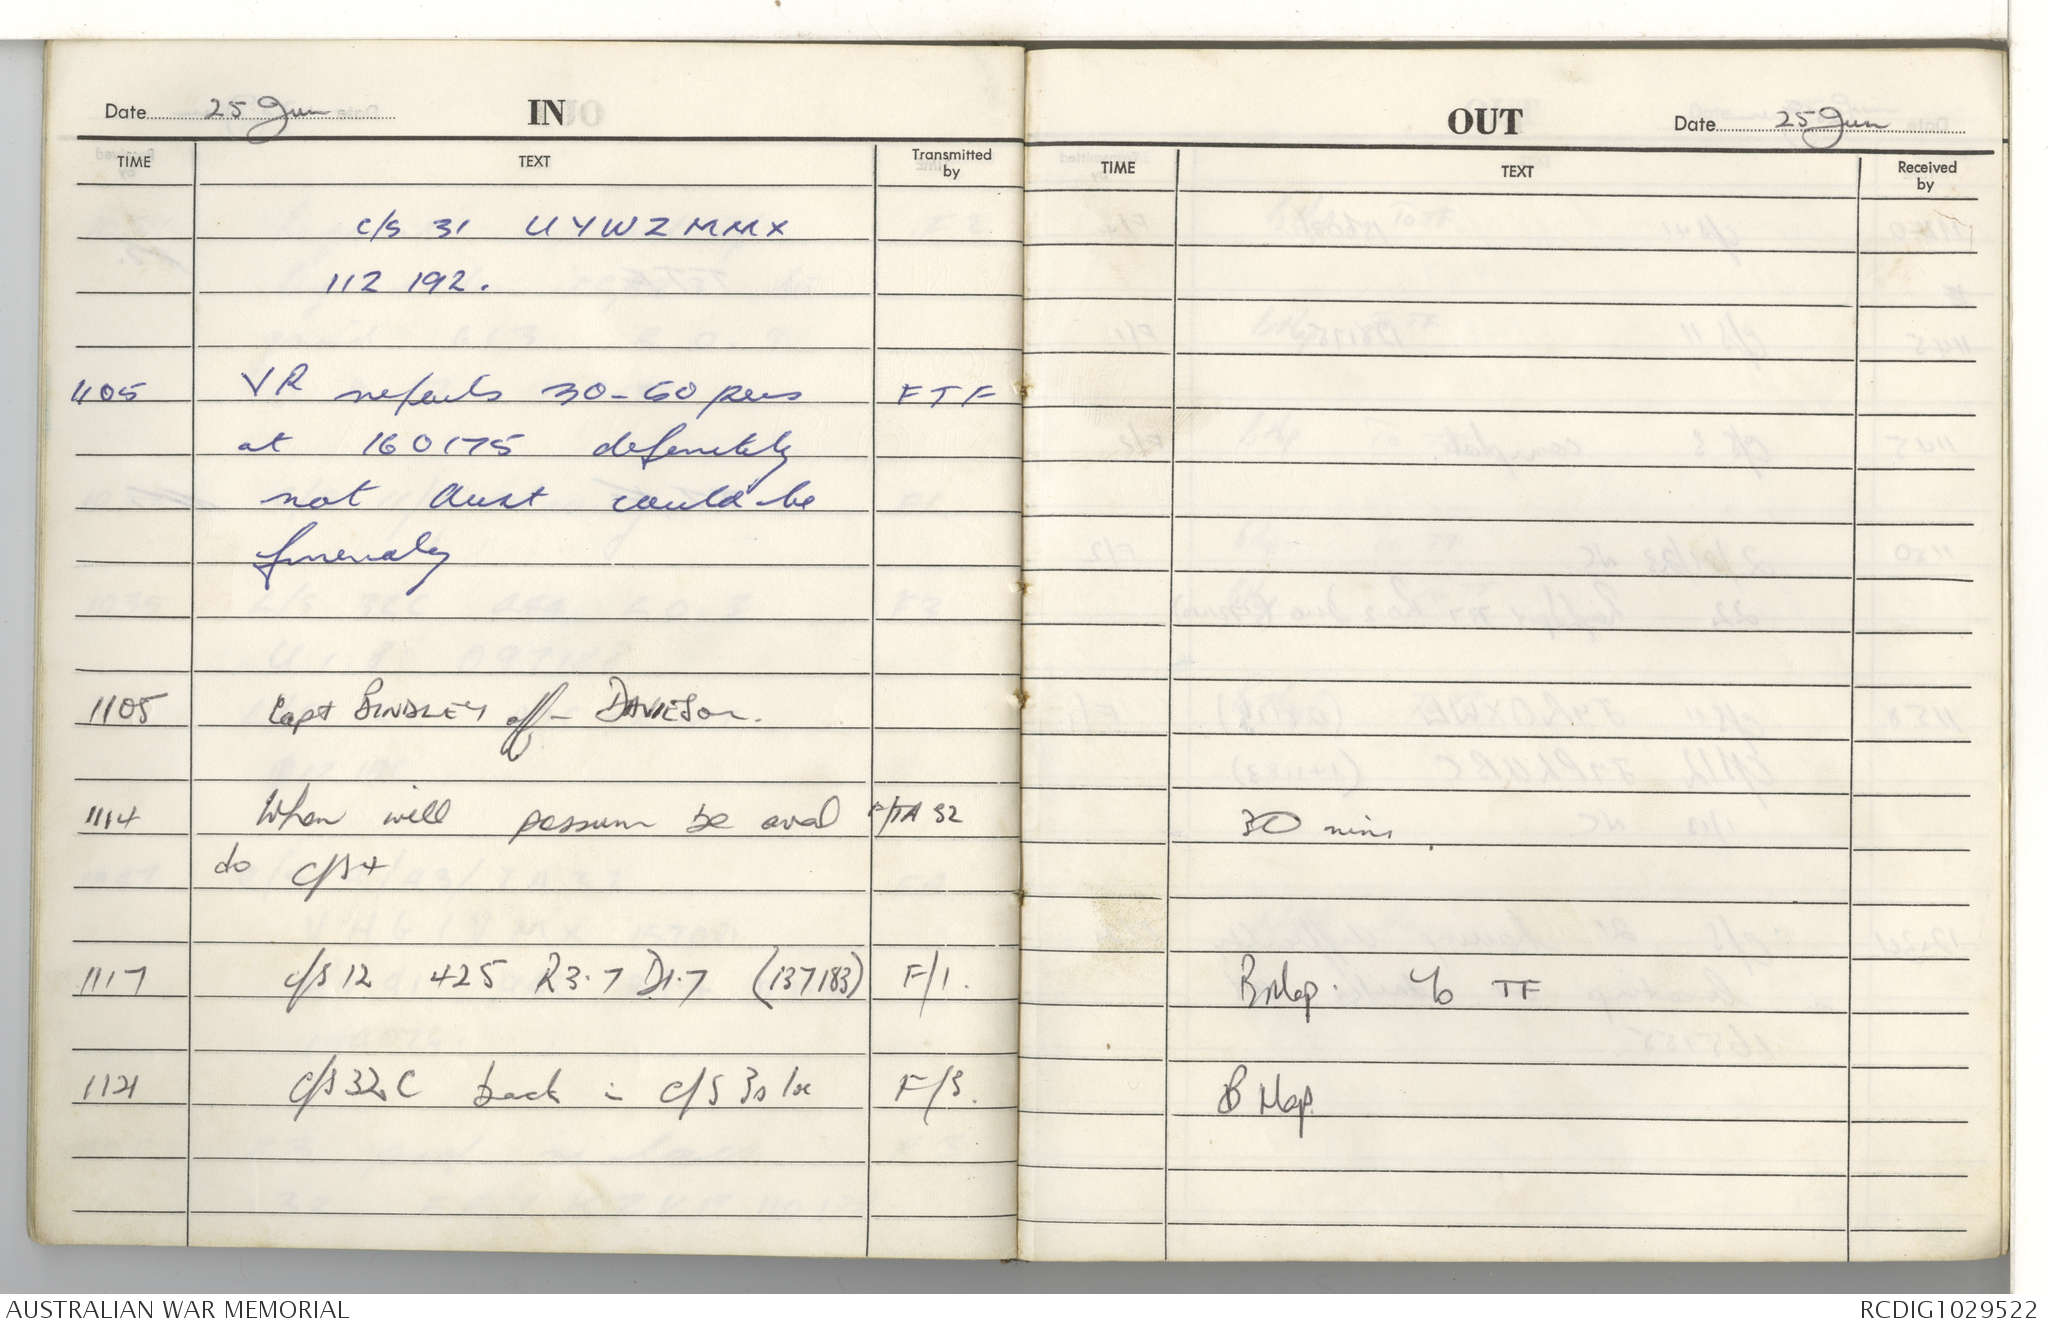 Date 25 Jun IN
TIME TEXT Transmitted by
c/s 31 UYWZMMX
112 192.
1105 VR refents 30-60 pers FTF
at 160175 definitely
not Aust could be
friendly
1105 Capt BINDLEY off - DAVIESON.
1114 When will possum be aval F/TA 82
do c/s 4
1117 c/s 12 425 R3.7 D1.7 (137183) F/1.
1121 c/s 32C back in c/s 3s loc F/3.
OUT Date 25 Jun
TIME TEXT Received by
30 mins
BMap. to TF
B Map.
AUSTRALIAN WAR MEMORIAL
RCDIG1029522